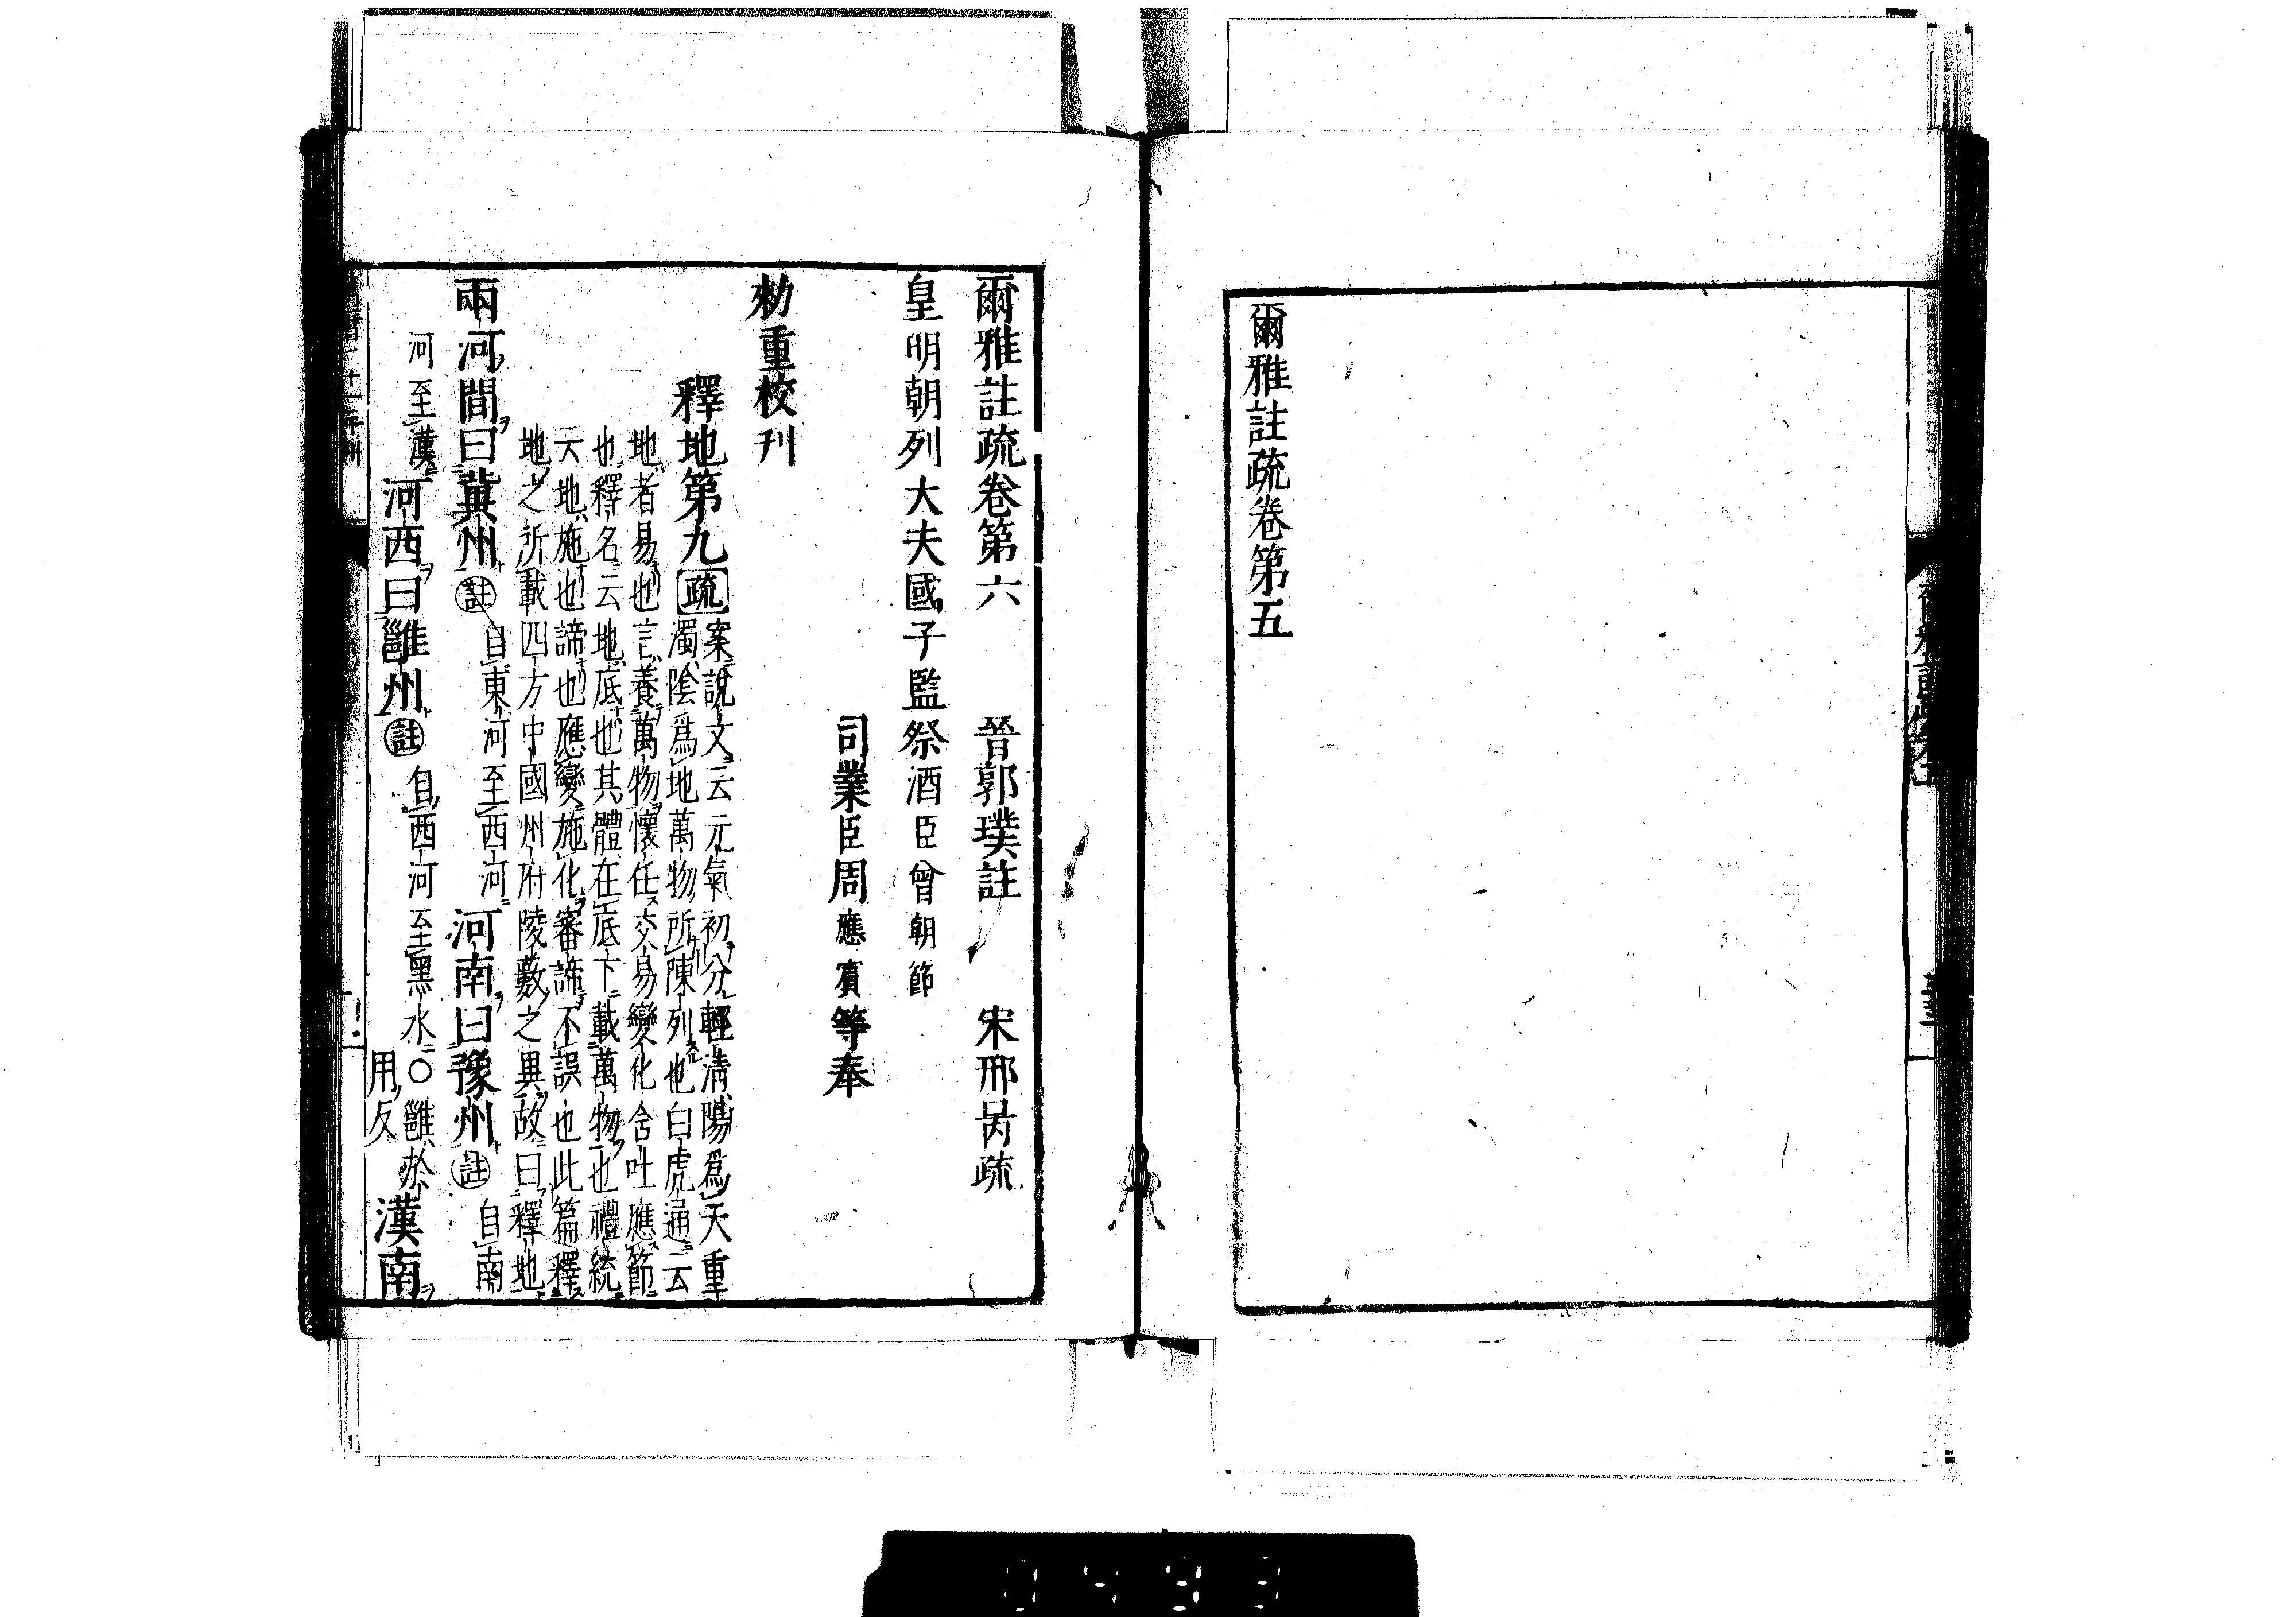 爾雅註疏卷第五
爾雅註疏卷第六 晉郭璞註 宋邢昺疏
皇明朝列大夫國子監祭酒臣曾朝節
司業臣周應賓等奉
勅重校刊
釋地第九疏案說文云元氣初分輕清陽爲天重
濁陰爲地萬物所陳列也白虎通云
地者易也言養萬物懷任交易變化含吐應節
也釋名云地底也其體在底下載萬物也禮統
云地施也諦也應變施化審諦不誤也此篇釋
地之所載四方中國州府陵藪之異故曰釋地
兩河間曰冀州註自東河至西河河南曰豫州註自南
河至漢河西曰雝州註自西河至黑水○雝於用反漢南